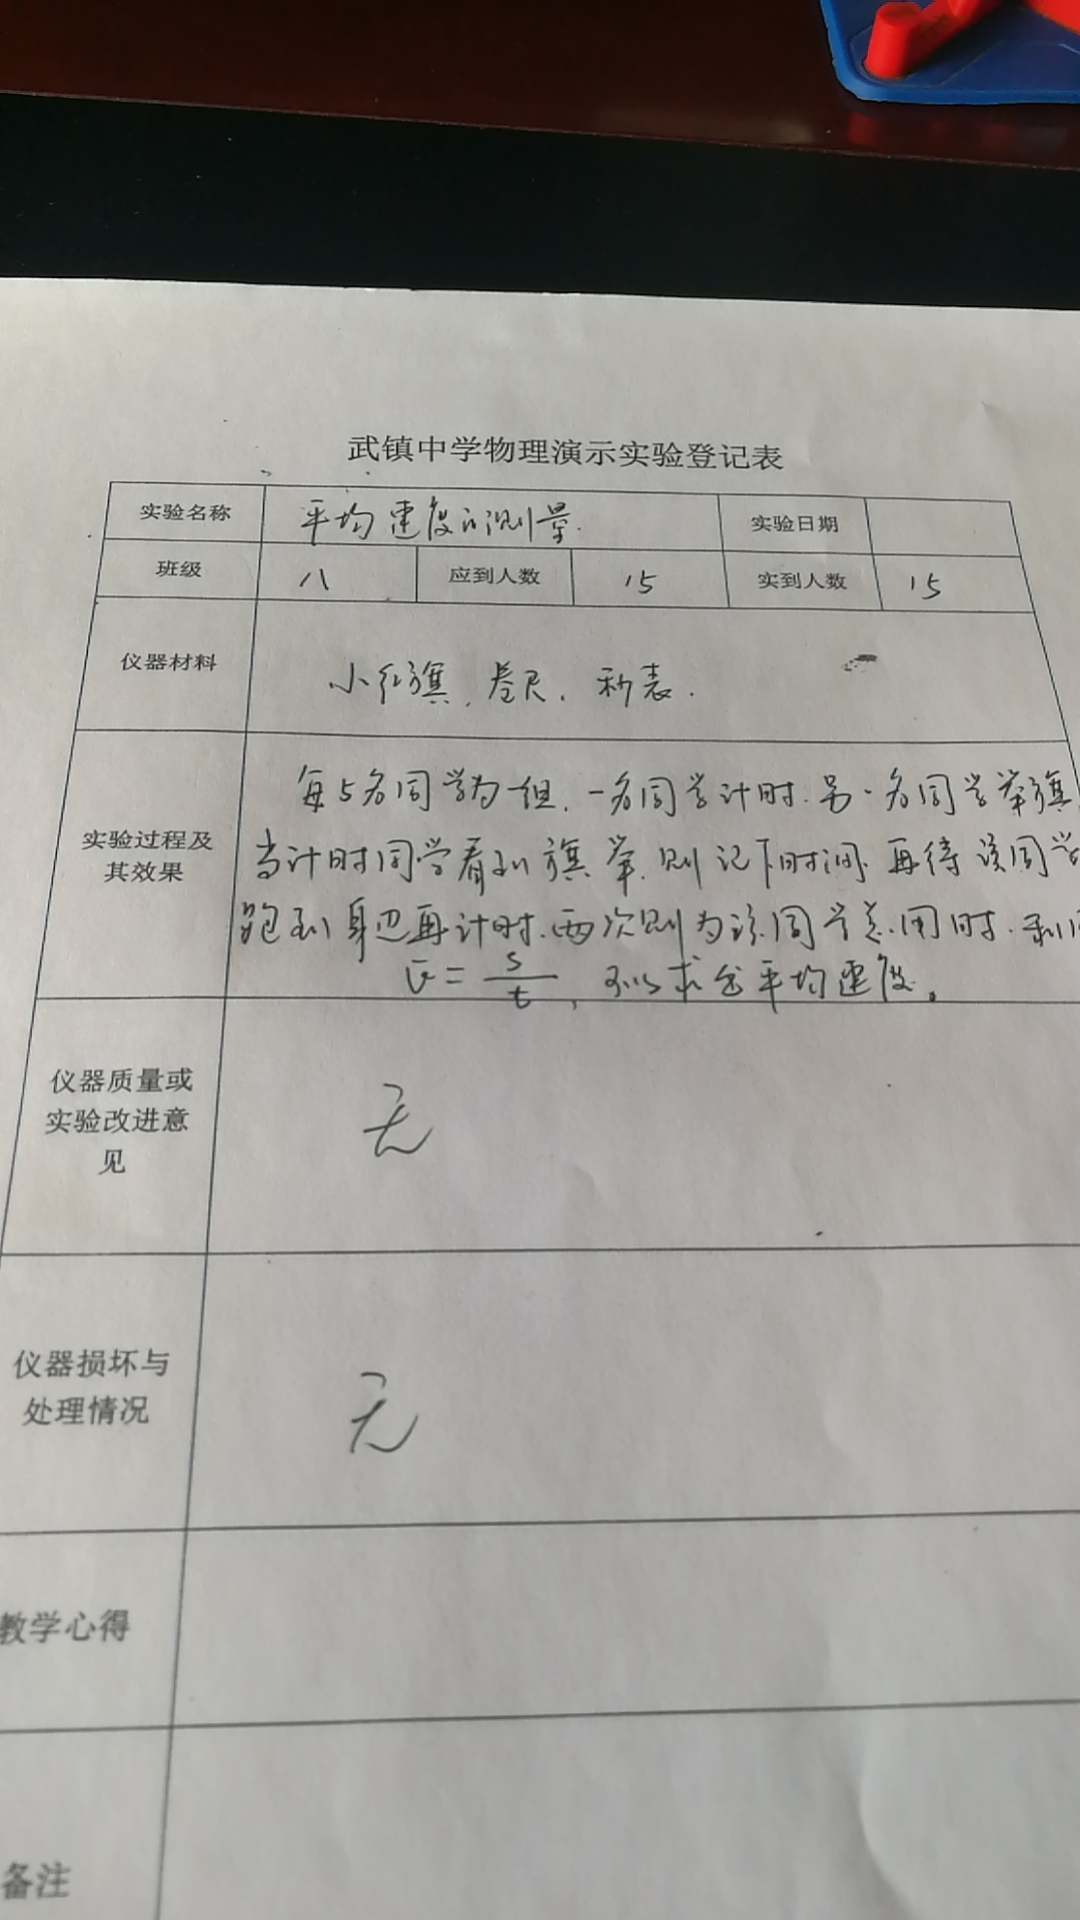 武镇中学物理演示实验登记表
实验名称 平均速度的测量. 实验日期
班级 八 应到人数 15 实到人数 15
仪器材料 小红旗, 卷尺, 秒表.
实验过程及
其效果
每5名同学为一组, 一名同学计时. 另一名同学举旗
当计时同学看到旗举, 则记下时间. 再待该同学
跑到身边再计时. 两次则为该同学总用时. 利用
v̄ = s/t, 可以求出平均速度。
仪器质量或
实验改进意
见
无
仪器损坏与
处理情况
无
教学心得
备注